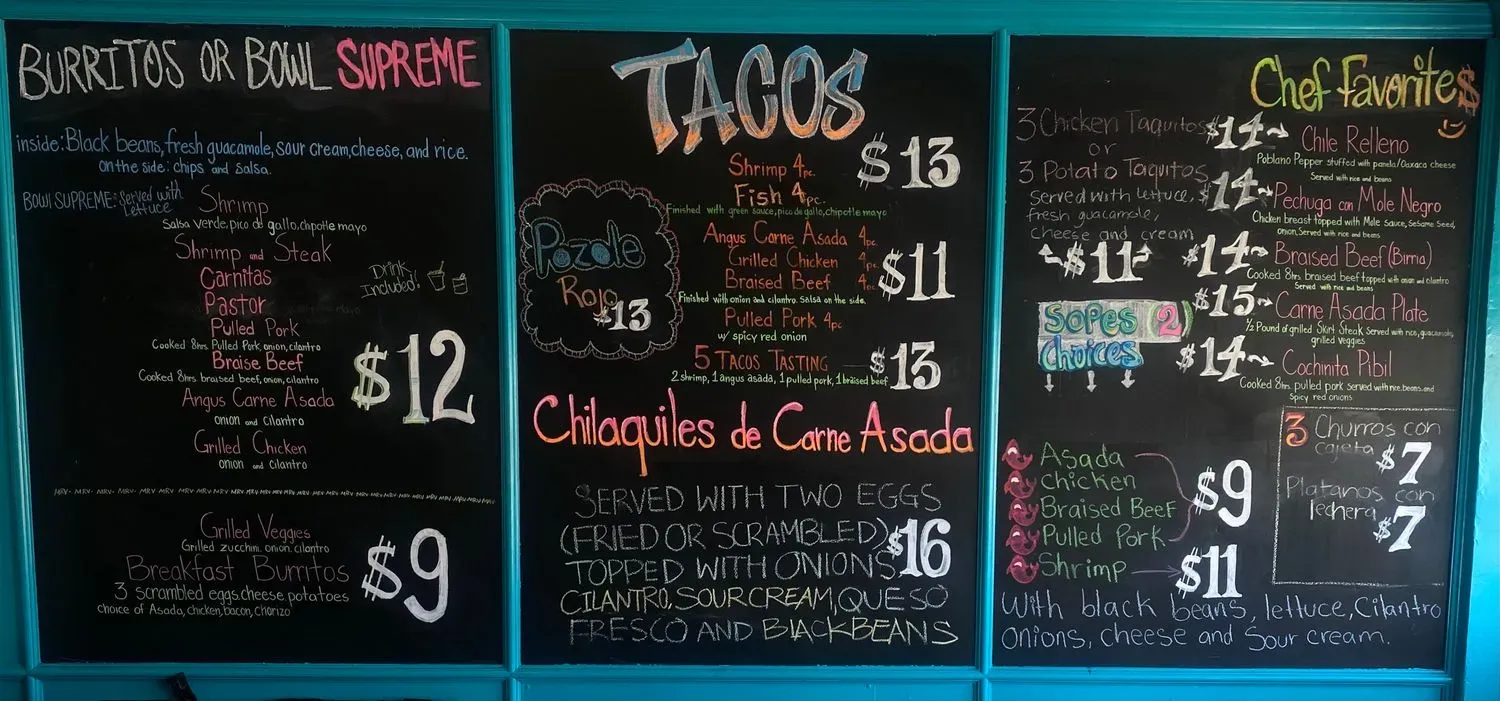 BURRITOS OR BOWL SUPREME
inside: Black beans, fresh guacamole, sour cream, cheese, and rice.
on the side: chips and salsa.
BOWL SUPREME: Served with
Lettuce
Shrimp
Salsa verde, pico de gallo, chipotle mayo
Shrimp and Steak
Carnitas
Pastor
Drink
Included!
Pulled Pork
Cooked 8hrs. Pulled Pork, onion, cilantro
Braise Beef
Cooked 8hrs braised beef, onion, cilantro
Angus Carne Asada
onion and cilantro
Grilled Chicken
onion and cilantro
$12
Grilled Veggies
Grilled zucchini. onion. cilantro
Breakfast Burritos
3 scrambled eggs.cheese.potatoes
choice of Asada, chicken, bacon, chorizo
$9
TACOS
Shrimp 4pc.
Fish 4pc.
$13
Finished with green sauce, pico de gallo, chipotle mayo
Angus Carne Asada 4pc.
Grilled Chicken 4pc.
Braised Beef 4pc.
$11
Finished with onion and cilantro. Salsa on the side.
Pulled Pork 4pc
w/ spicy red onion
5 TACOS TASTING $13
2 shrimp, 1 angus asada, 1 pulled pork, 1 braised beef
Pozole
Rojo
$13
Chilaquiles de Carne Asada
SERVED WITH TWO EGGS
(FRIED OR SCRAMBLED)
TOPPED WITH ONIONS
$16
CILANTRO, SOUR CREAM, QUESO
FRESCO AND BLACKBEANS
Chef Favorite$
3 Chicken Taquitos
or
3 Potato Taquitos
Served with lettuce,
fresh guacamole,
cheese and cream
$11
$14 Chile Relleno
Poblano Pepper stuffed with panela/Oaxaca cheese
Served with rice and beans
$14 Pechuga con Mole Negro
Chicken breast topped with Mole sauce, Sesame Seed,
onion. Served with rice and beans
$14 Braised Beef (Birria)
Cooked 8hrs braised beef topped with onion and cilantro
Served with rice and beans
$15 Carne Asada Plate
½ Pound of grilled Skirt Steak Served with rice, guacamole,
grilled veggies
$14 Cochinita Pibil
Cooked 8hrs. pulled pork served with rice.beans.and
Spicy red onions
Sopes (2)
Choices
Asada
chicken
Braised Beef
Pulled Pork
$9
Shrimp $11
With black beans, lettuce, Cilantro
Onions, cheese and Sour cream.
3 Churros con
cajeta $7
Platanos con
lechera
$7